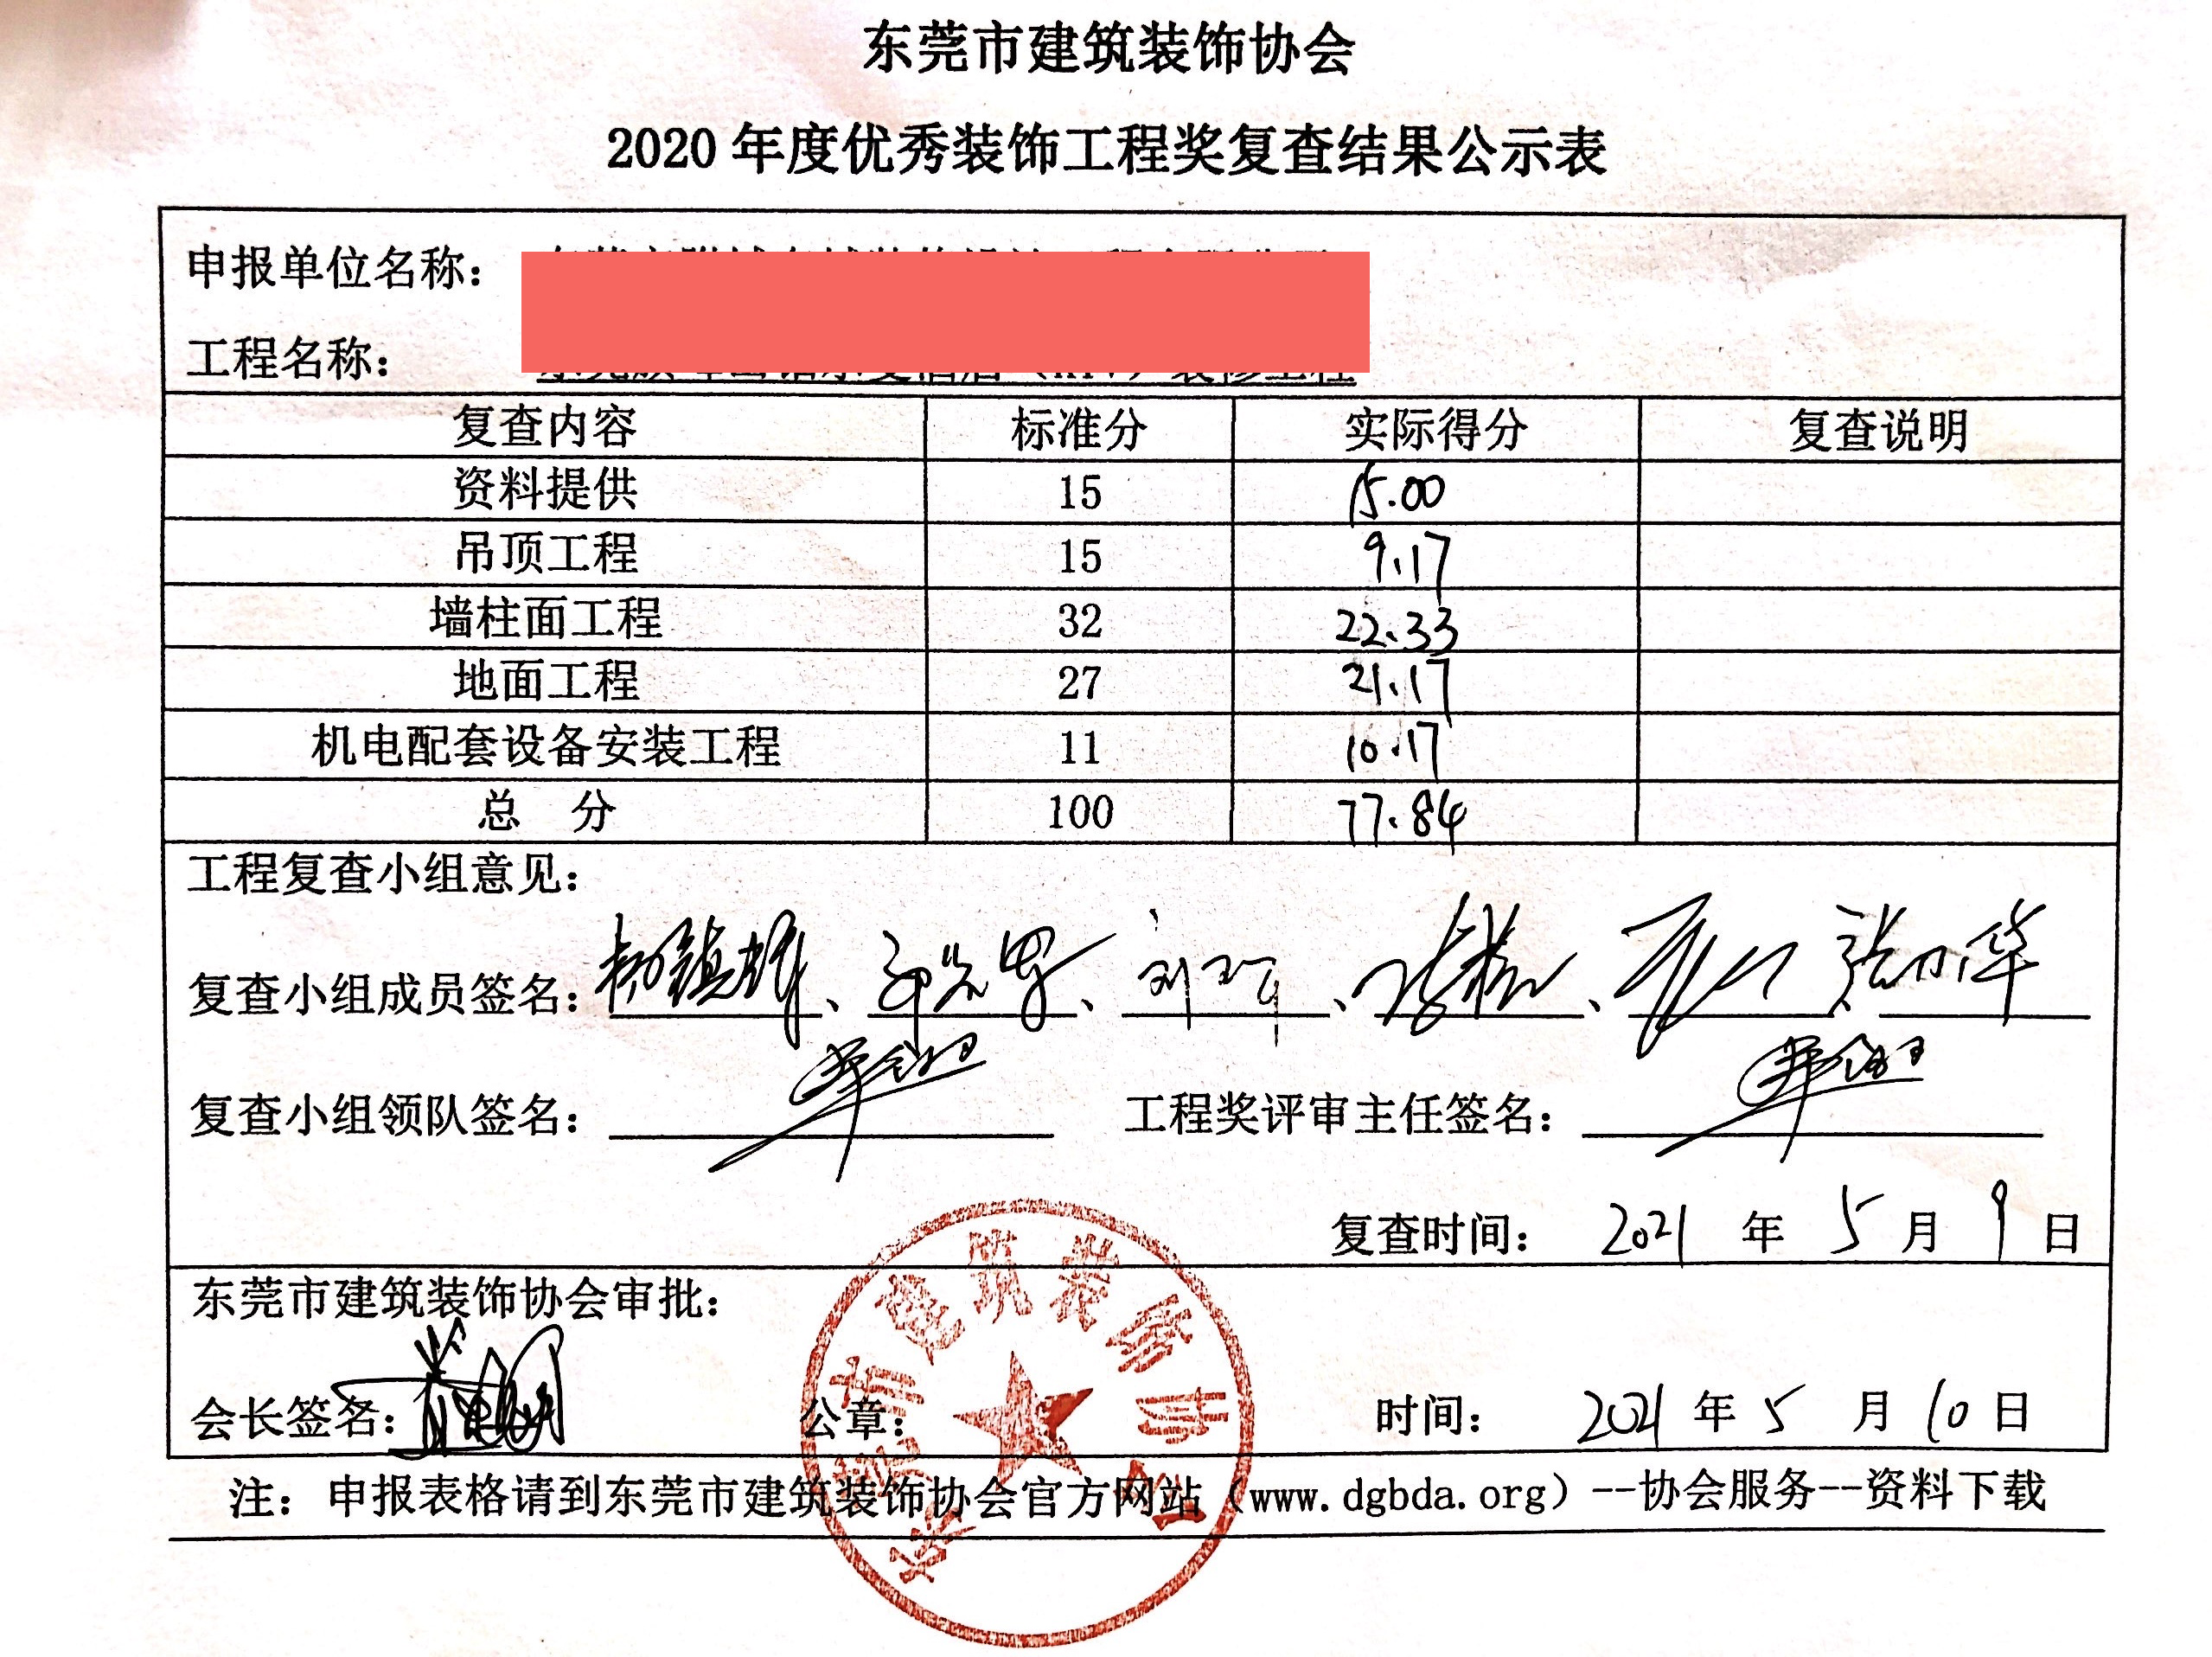 东莞市建筑装饰协会
2020 年度优秀装饰工程奖复查结果公示表
申报单位名称：
工程名称：
复查内容 标准分 实际得分 复查说明
资料提供 15 15.00
吊顶工程 15 9.17
墙柱面工程 32 22.33
地面工程 27 21.17
机电配套设备安装工程 11 10.17
总 分 100 77.84
工程复查小组意见：
复查小组成员签名：
复查小组领队签名： 工程奖评审主任签名：
复查时间： 2021 年 5 月 9 日
东莞市建筑装饰协会审批：
会长签名： 公章： 时间： 2021 年 5 月 10 日
东莞市建筑装饰协会
注：申报表格请到东莞市建筑装饰协会官方网站（www.dgbda.org）--协会服务--资料下载